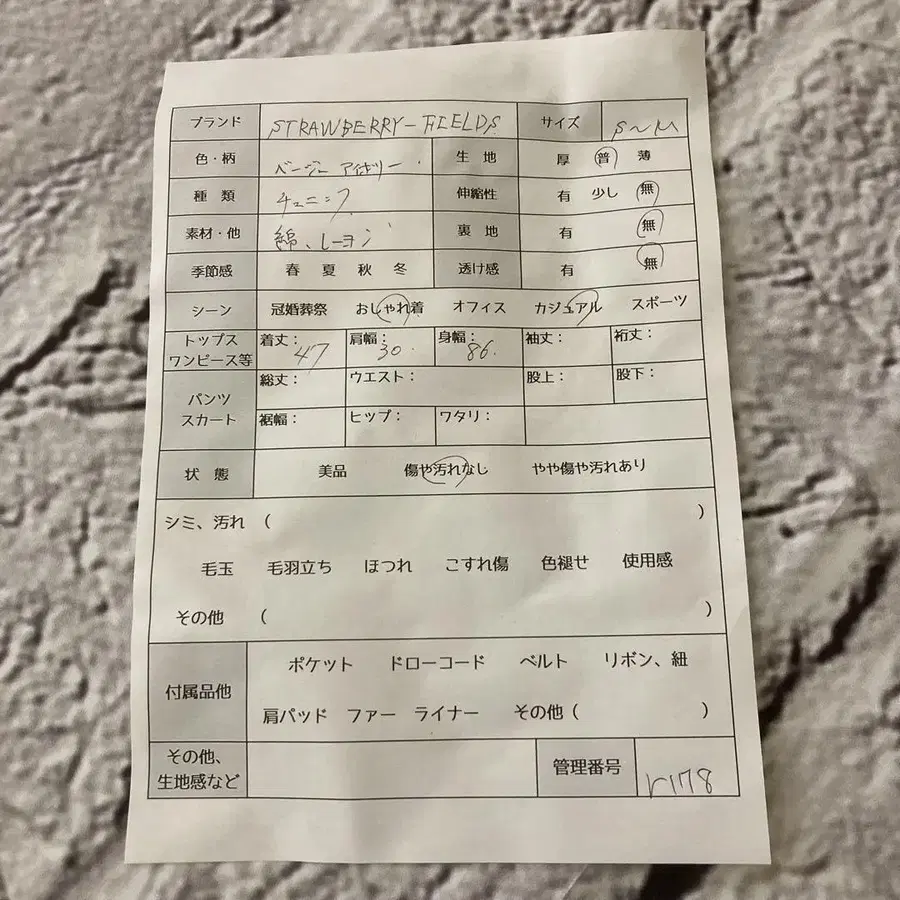 ブランド STRAWBERRY-FIELDS サイズ S~M
色・柄 ベージュ アイボリー 生地 厚 普 薄
種類 チュニック 伸縮性 有 少し 無
素材・他 綿、レーヨン 裏地 有 無
季節感 春 夏 秋 冬 透け感 有 無
シーン 冠婚葬祭 おしゃれ着 オフィス カジュアル スポーツ
トップス ワンピース等 着丈: 47 肩幅: 30. 身幅: 86. 袖丈: 裄丈:
パンツ 総丈: ウエスト: 股上: 股下:
スカート 裾幅: ヒップ: ワタリ:
状態 美品 傷や汚れなし やや傷や汚れあり
シミ、汚れ ( )
毛玉 毛羽立ち ほつれ こすれ傷 色褪せ 使用感
その他 ( )
付属品他 ポケット ドローコード ベルト リボン、紐
肩パッド ファー ライナー その他 ( )
その他、
生地感など 管理番号 r178